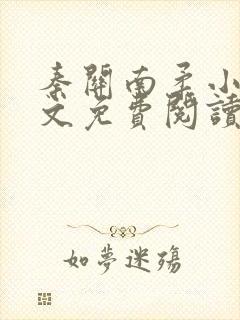 秦關南柔小
文免費閱讀
如夢迷殤